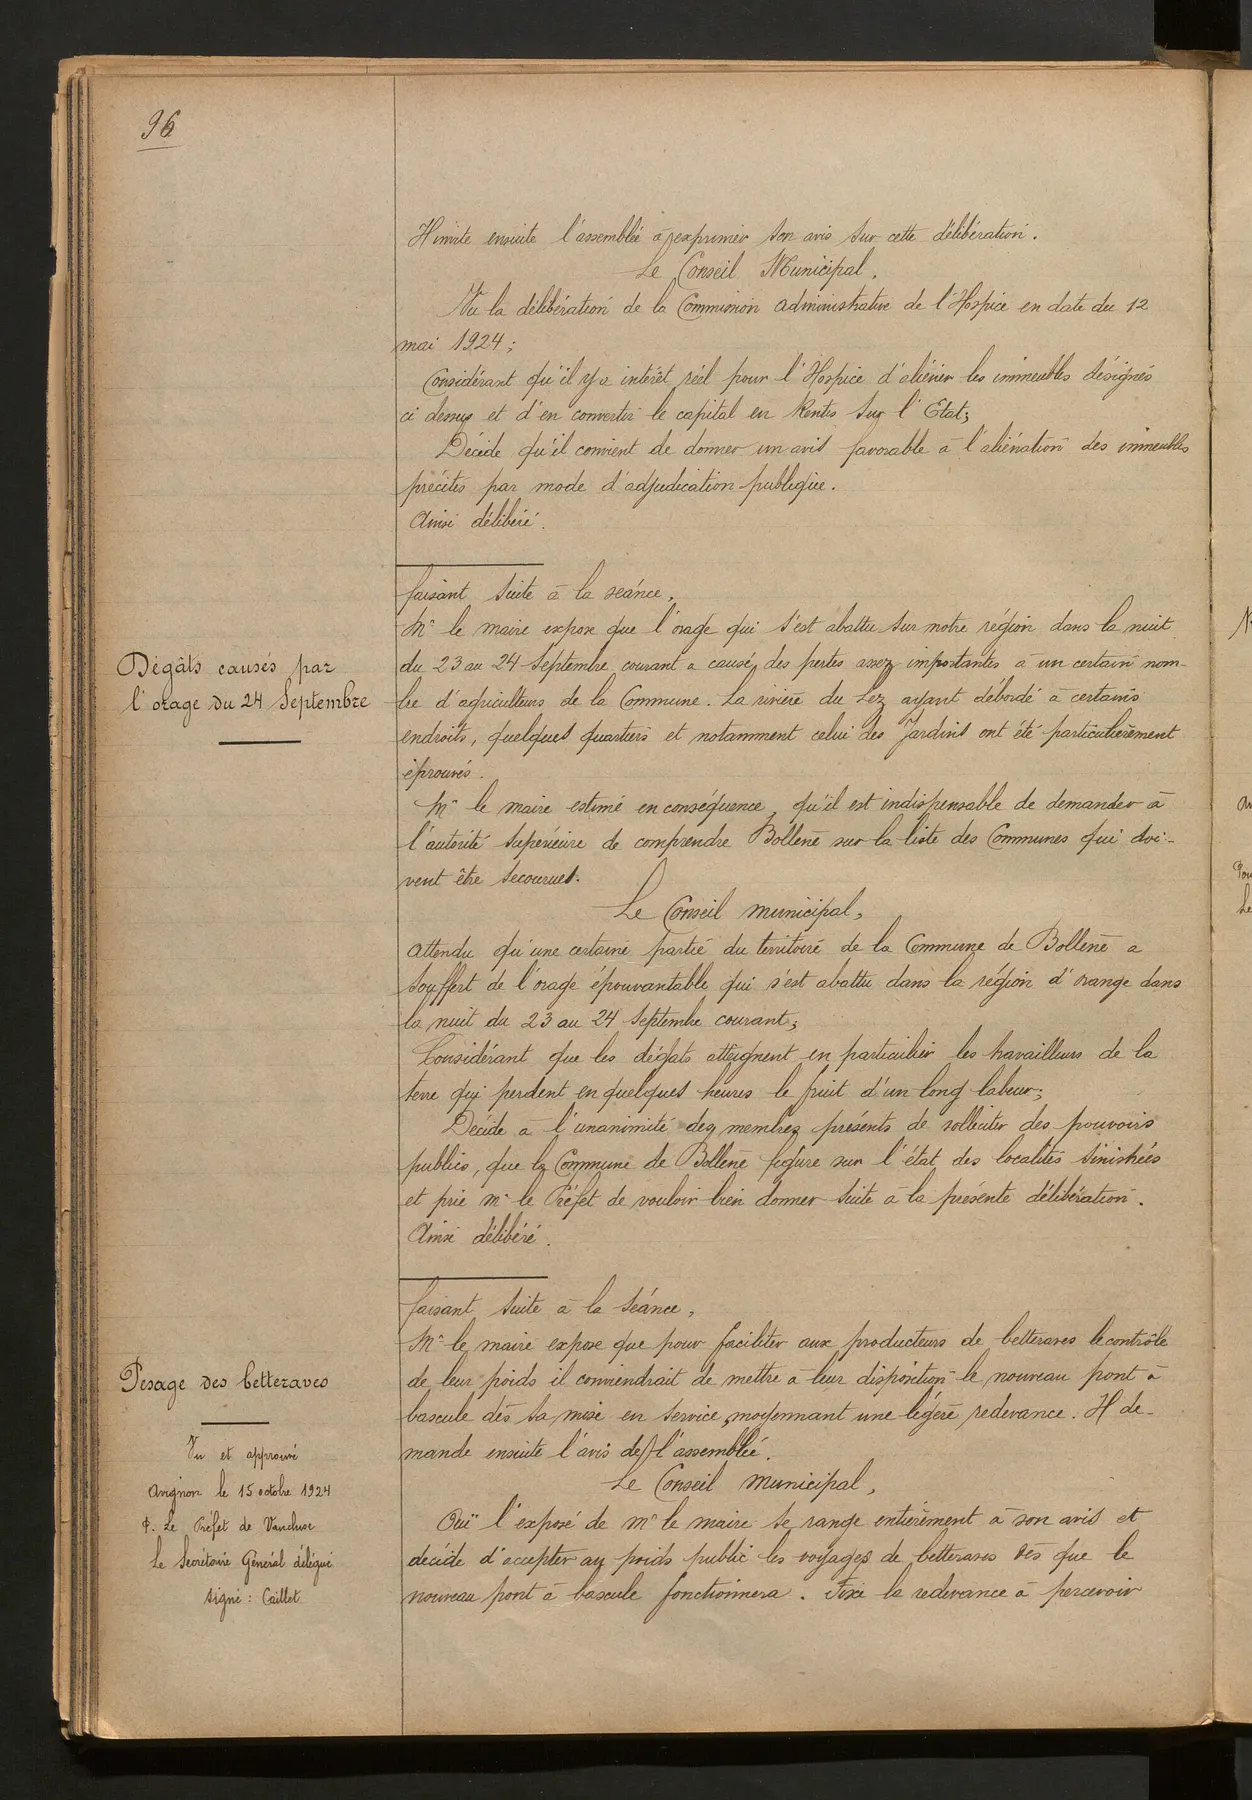 96
Il invite ensuite l'assemblée à exprimer son avis sur cette délibération.
Le Conseil Municipal,
Vu la délibération de la Commission administrative de l'Hospice en date du 12
mai 1924;
Considérant qu'il y a intérêt réel pour l'Hospice d'aliéner les immeubles désignés
ci dessus et d'en convertir le capital en Rentes sur l'Etat;
Décide qu'il convient de donner un avis favorable à l'aliénation des immeubles
précités par mode d'adjudication publique.
Ainsi délibéré.
Dégâts causés par
l'orage du 24 Septembre
faisant suite à la séance,
Mr le maire expose que l'orage qui s'est abattu sur notre région dans la nuit
du 23 au 24 Septembre courant a causé des pertes assez importantes à un certain nom-
bre d'agriculteurs de la Commune. La rivière du Lez ayant débordé à certains
endroits, quelques quartiers et notamment celui des Jardins ont été particulièrement
éprouvés.
Mr le maire estime en conséquence, qu'il est indispensable de demander à
l'autorité supérieure de comprendre Bollène sur la liste des Communes qui doi-
vent être secourues.
Le Conseil municipal,
Attendu qu'une certaine partie du territoire de la Commune de Bollène a
souffert de l'orage épouvantable qui s'est abattu dans la région d'orange dans
la nuit du 23 au 24 Septembre courant;
Considérant que les dégats atteignent en particulier les travailleurs de la
terre qui perdent en quelques heures le fruit d'un long labeur;
Décide à l'unanimité des membres présents de solliciter des pouvoirs
publics, que la Commune de Bollène figure sur l'état des localités sinistrées
et prie Mr le Préfet de vouloir bien donner suite à la présente délibération.
Ainsi délibéré.
Pesage des betteraves
Vu et approuvé
Avignon le 15 octobre 1924
P. Le Préfet de Vaucluse
Le Secrétaire Général délégué
signé : Caillet
faisant suite à la séance,
Mr le maire expose que pour faciliter aux producteurs de betteraves le contrôle
de leur poids il conviendrait de mettre à leur disposition le nouveau pont à
bascule dès sa mise en service, moyennant une légère redevance. Il de-
mande ensuite l'avis de l'assemblée.
Le Conseil municipal,
Ouï l'exposé de Mr le maire se range entièrement à son avis et
décide d'accepter au poids public les voyages de betteraves dès que le
nouveau pont à bascule fonctionnera. Fixe la redevance à percevoir